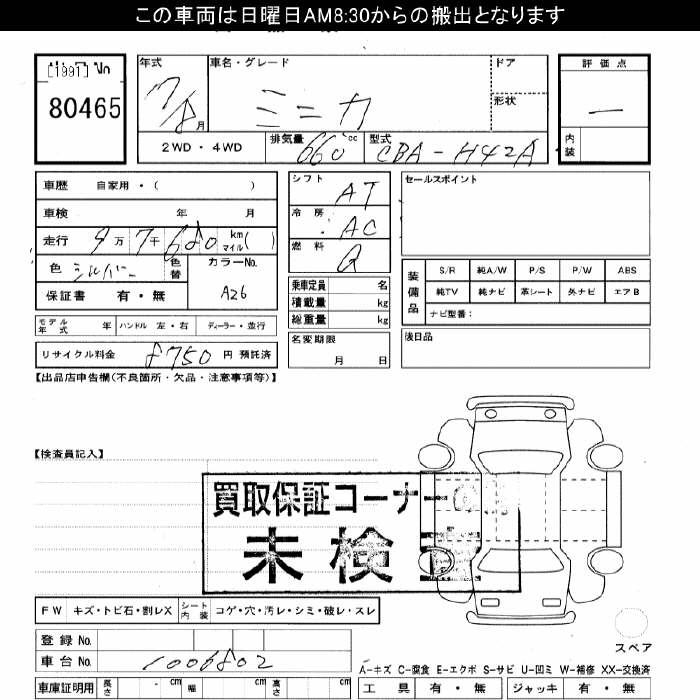 この車両は日曜日AM8:30からの搬出となります
[1991] No
80465
年式
17/8月
車名・グレード
ミニカ
ドア
形状
評価点
―
内装
2WD・4WD
排気量
660cc
型式
CBA-H42A
車歴 自家用・( )
車検 年 月
走行 9万7千680 km マイル( )
色 シルバー 色替
カラーNo.
A26
保証書 有・無
モデル年式 年 ハンドル 左・右 ディーラー・並行
リサイクル料金 8750 円 預託済
シフト AT
冷房 AC
燃料 G
乗車定員 名
積載量 kg
総重量 kg
名変期限
月 日
セールスポイント
装備品
S/R 純A/W P/S P/W ABS
純TV 純ナビ 革シート 外ナビ エアB
ナビ型番:
後日品
【出品店申告欄(不良箇所・欠品・注意事項等)】
【検査員記入】
買取保証コーナー
未検
FW キズ・トビ石・割レX シート内装 コゲ・穴・汚レ・シミ・破レ・スレ
登録No.
車台No. 1006802
車庫証明用 長さ cm 幅 cm 高さ cm
スペア
A-キズ C-腐食 E-エクボ S-サビ U-凹ミ W-補修 XX-交換済
工具 有・無 ジャッキ 有・無